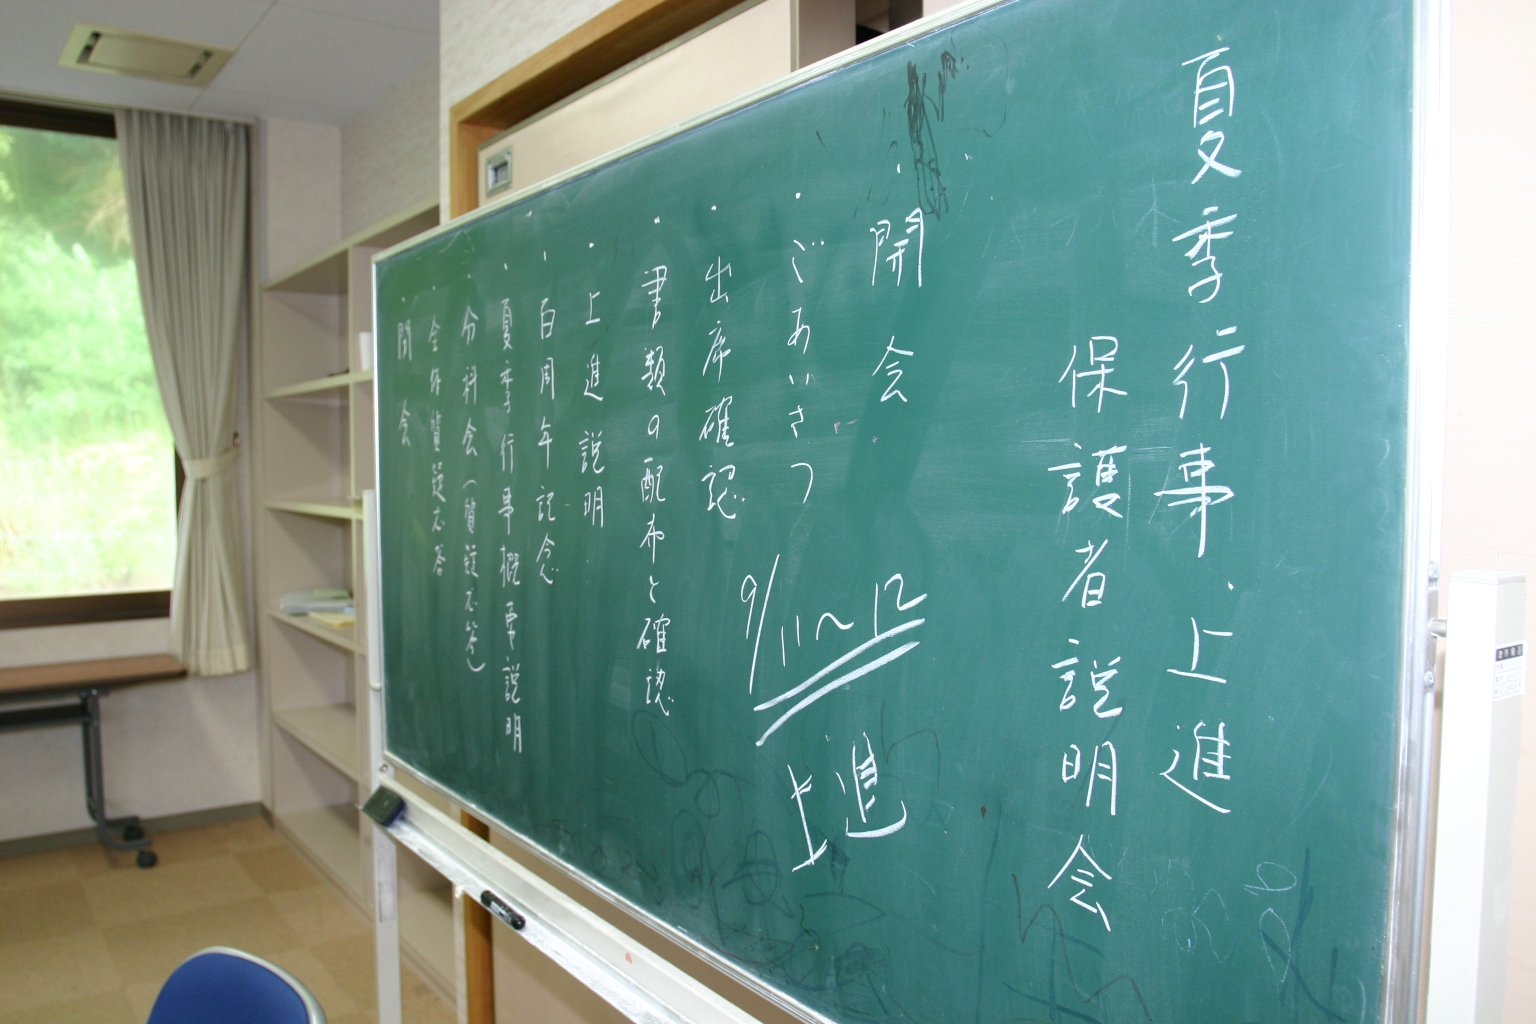 夏季行事・上進
保護者説明会
・開会
・ごあいさつ
・出席確認
・書類の配布と確認
・上進説明
・百周年記念
・夏季行事概要説明
・分科会(質疑応答)
・全体質疑応答
・閉会
9/11〜12
上進